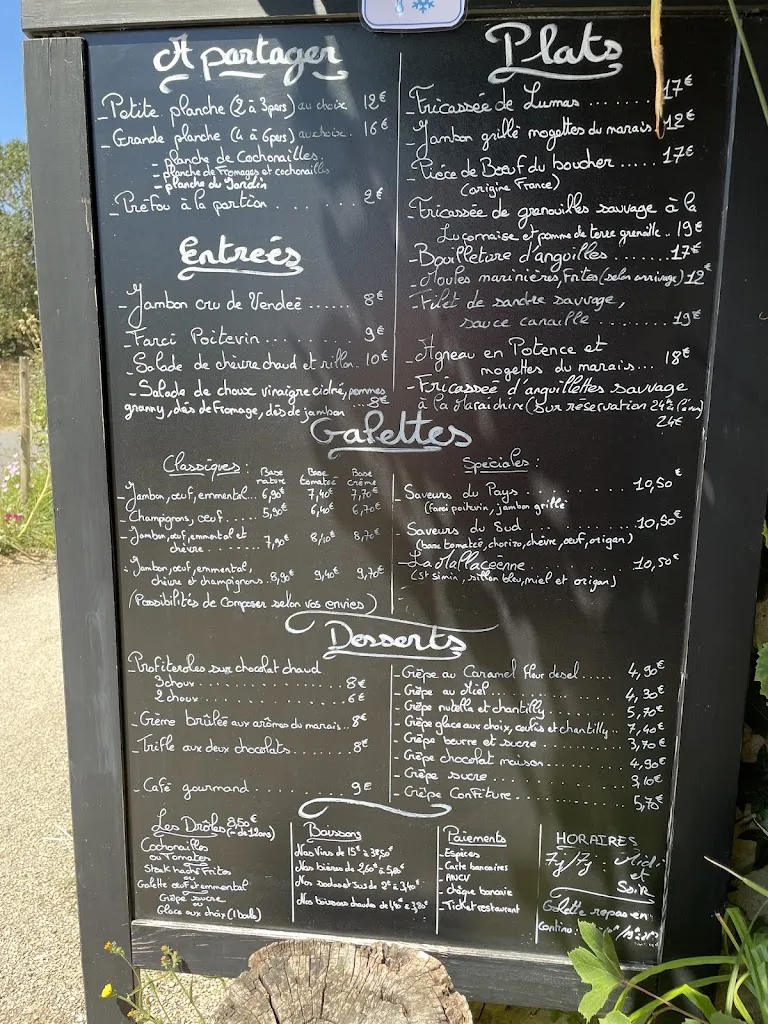 A partager
- Petite planche (2 à 3pers) au choix 12€
- Grande planche (4 à 6pers) au choix. 16€
- planche de Cochonailles.
- planche de Fromages et cochonailles
- planche du Jardin
- Préfou à la portion . . . . . . . . 2€
Entrées
- Jambon cru de Vendeé ...... 8€
- Farci Poitevin ............ 9€
- Salade de chèvre chaud et rillon.. 10€
- Salade de choux vinaigre cidré, pommes
granny, dés de fromage, dés de jambon ...8€
Plats
- Fricassée de Lumas ........ 17€
- Jambon grillé mogettes du marais. 12€
- Pièce de Bœuf du boucher ..... 17€
(origine France)
- Fricassée de grenouilles sauvage à la
Luçonnaise et pomme de terre grenaille .. 19€
- Bouilleture d'anguilles ........ 17€
- Moules marinières, Frites (selon arrivage) 12€
- Filet de sandre sauvage,
sauce canaille ......... 19€
- Agneau en Potence et
mogettes du marais... 18€
- Fricasseé d'anguillettes sauvage
à la Maraichine (sur réservation
24€
Galettes
Classiques : Base nature Base tomateé Base crème
- Jambon, œuf, emmental... 6,90€ 7,40€ 7,70€
- Champignons, œuf ....... 5,90€ 6,40€ 6,70€
- Jambon, œuf, emmental et
chèvre ....... 7,90€ 8,40€ 8,70€
- Jambon, œuf, emmental,
chèvre et champignons. 8,90€ 9,40€ 9,70€
(Possibilités de Composer selon vos envies)
Spéciales :
- Saveurs du Pays . . . . . . . . 10,50€
(farci poitevin, jambon grillé
- Saveurs du Sud . . . . . . . . 10,50€
(base tomateé, chorizo, chèvre, œuf, origan)
- La Mallaceenne . . . . . . . 10,50€
(St simin, sillon bleu, miel et origan)
Desserts
- Profiteroles sur chocolat chaud
3 choux ................ 8€
2 choux ................ 6€
- Crème brûlée aux arômes du marais.. 8€
- Trifle aux deux chocolats........ 8€
- Café gourmand .......... 9€
- Crêpe au Caramel fleur de sel ..... 4,90€
- Crêpe au Miel ............... 4,30€
- Crêpe nutella et chantilly ........ 5,70€
- Crêpe glace aux choix, coulis et chantilly.. 7,40€
- Crêpe beurre et sucre ........ 3,70€
- Crêpe chocolat maison ........ 4,90€
- Crêpe sucre ............... 3,10€
- Crêpe Confiture ............ 5,70€
Les Drôles 8,50€ (- de 12ans)
Cochonailles
ou Tomates
Steak haché Frites
ou
Galette œuf emmental
Crêpe sucre
ou
Glace aux choix (1 boule)
Boissons
Nos Vins de 15€ à 38,50€
Nos bières de 2,60€ à 5,80€
Nos sodas et Jus de 2€ à 3,40€
Nos boissons chaudes de 1,40€ à 3,80€
Paiements
- Espèces
- Carte bancaires
- ANCV
- Chèque bancaire
- Ticket restaurant
HORAIRES
7j/7j : Midi
et
Soir
Galette repas en
Continu.